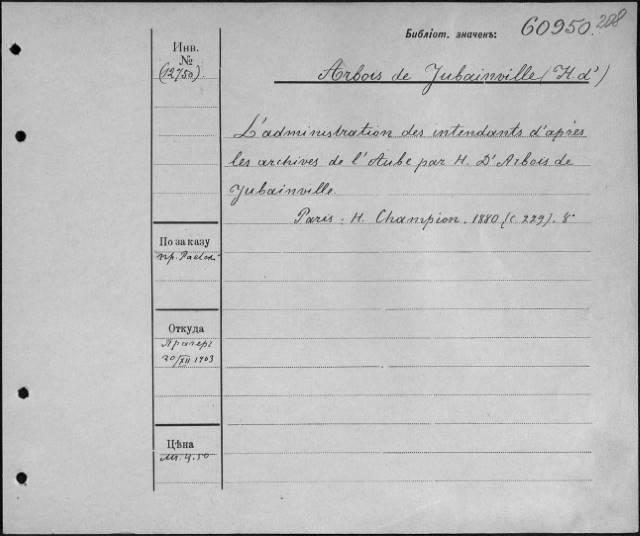 Библіот. значекъ: 60950.208
Инв.
№
(12750).
Arbois de Jubainville (H d')
L'administration des intendants d'après
les archives de l'Aube par H. D'Arbois de
Jubainville.
Paris. H. Champion. 1880 (с 229). 8°
По заказу
пр.
Откуда
20/XII 1903
Цѣна
мк. 4.50